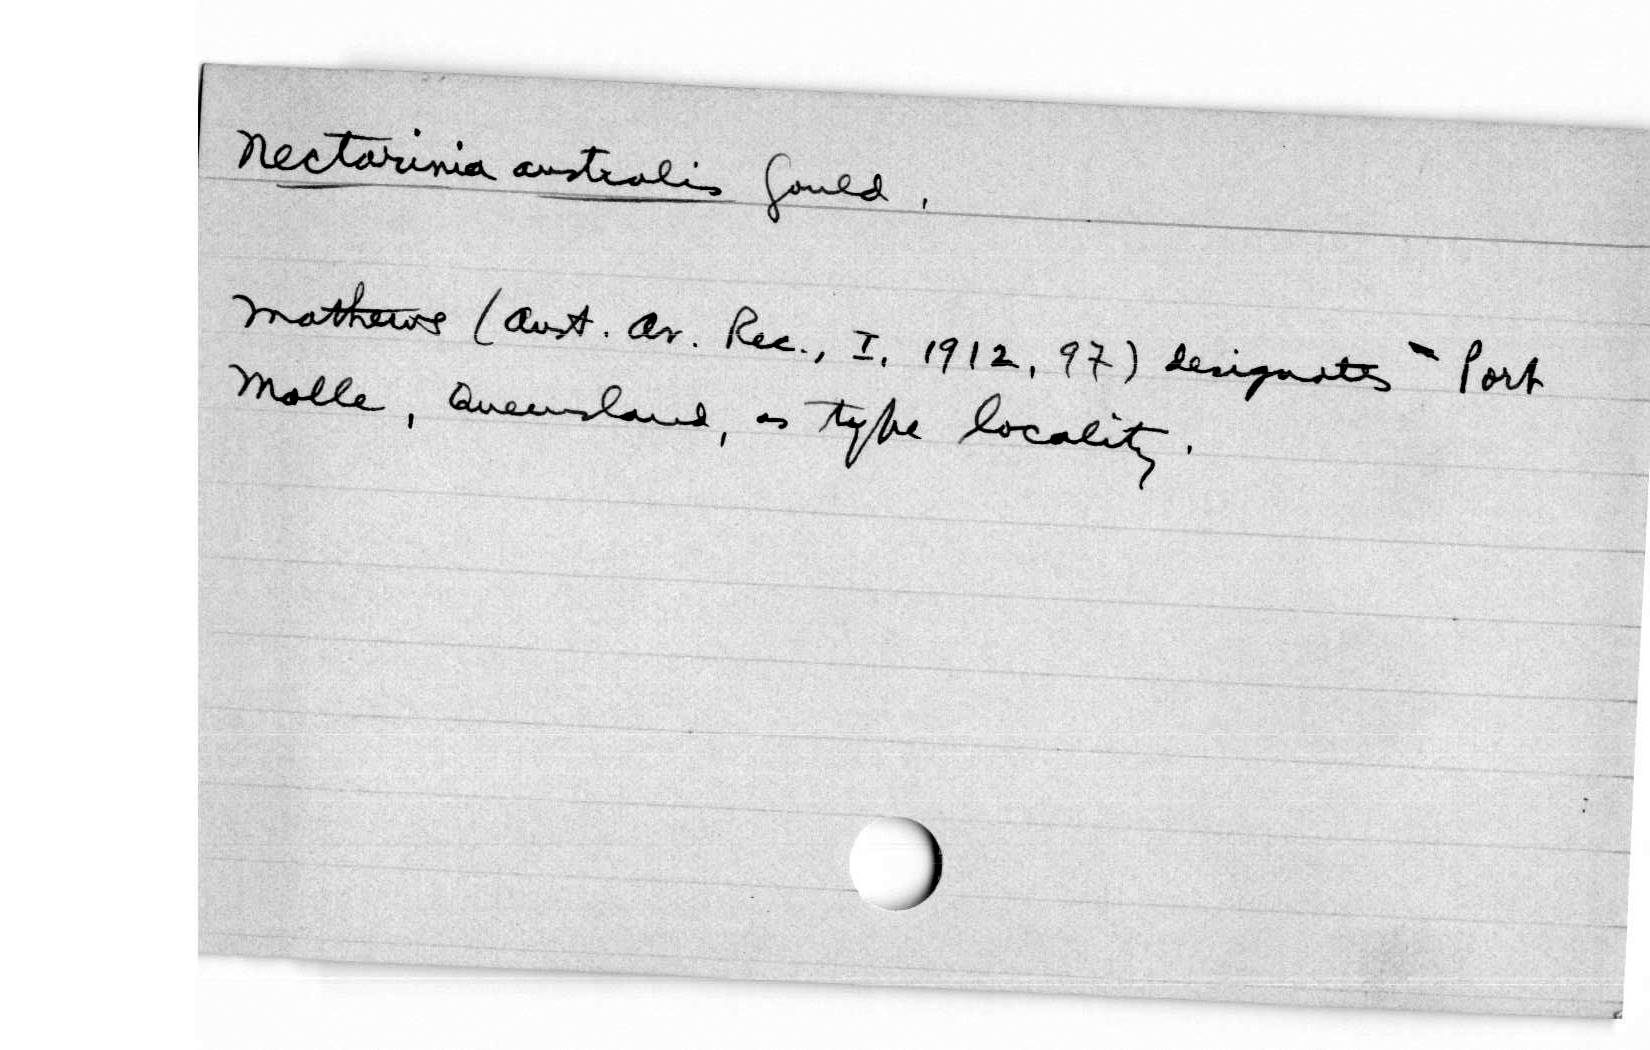 Nectarinia australis Gould.
Mathews (Aust. Av. Rec., I, 1912, 97) designates - Port
Molle, Queensland, as type locality.